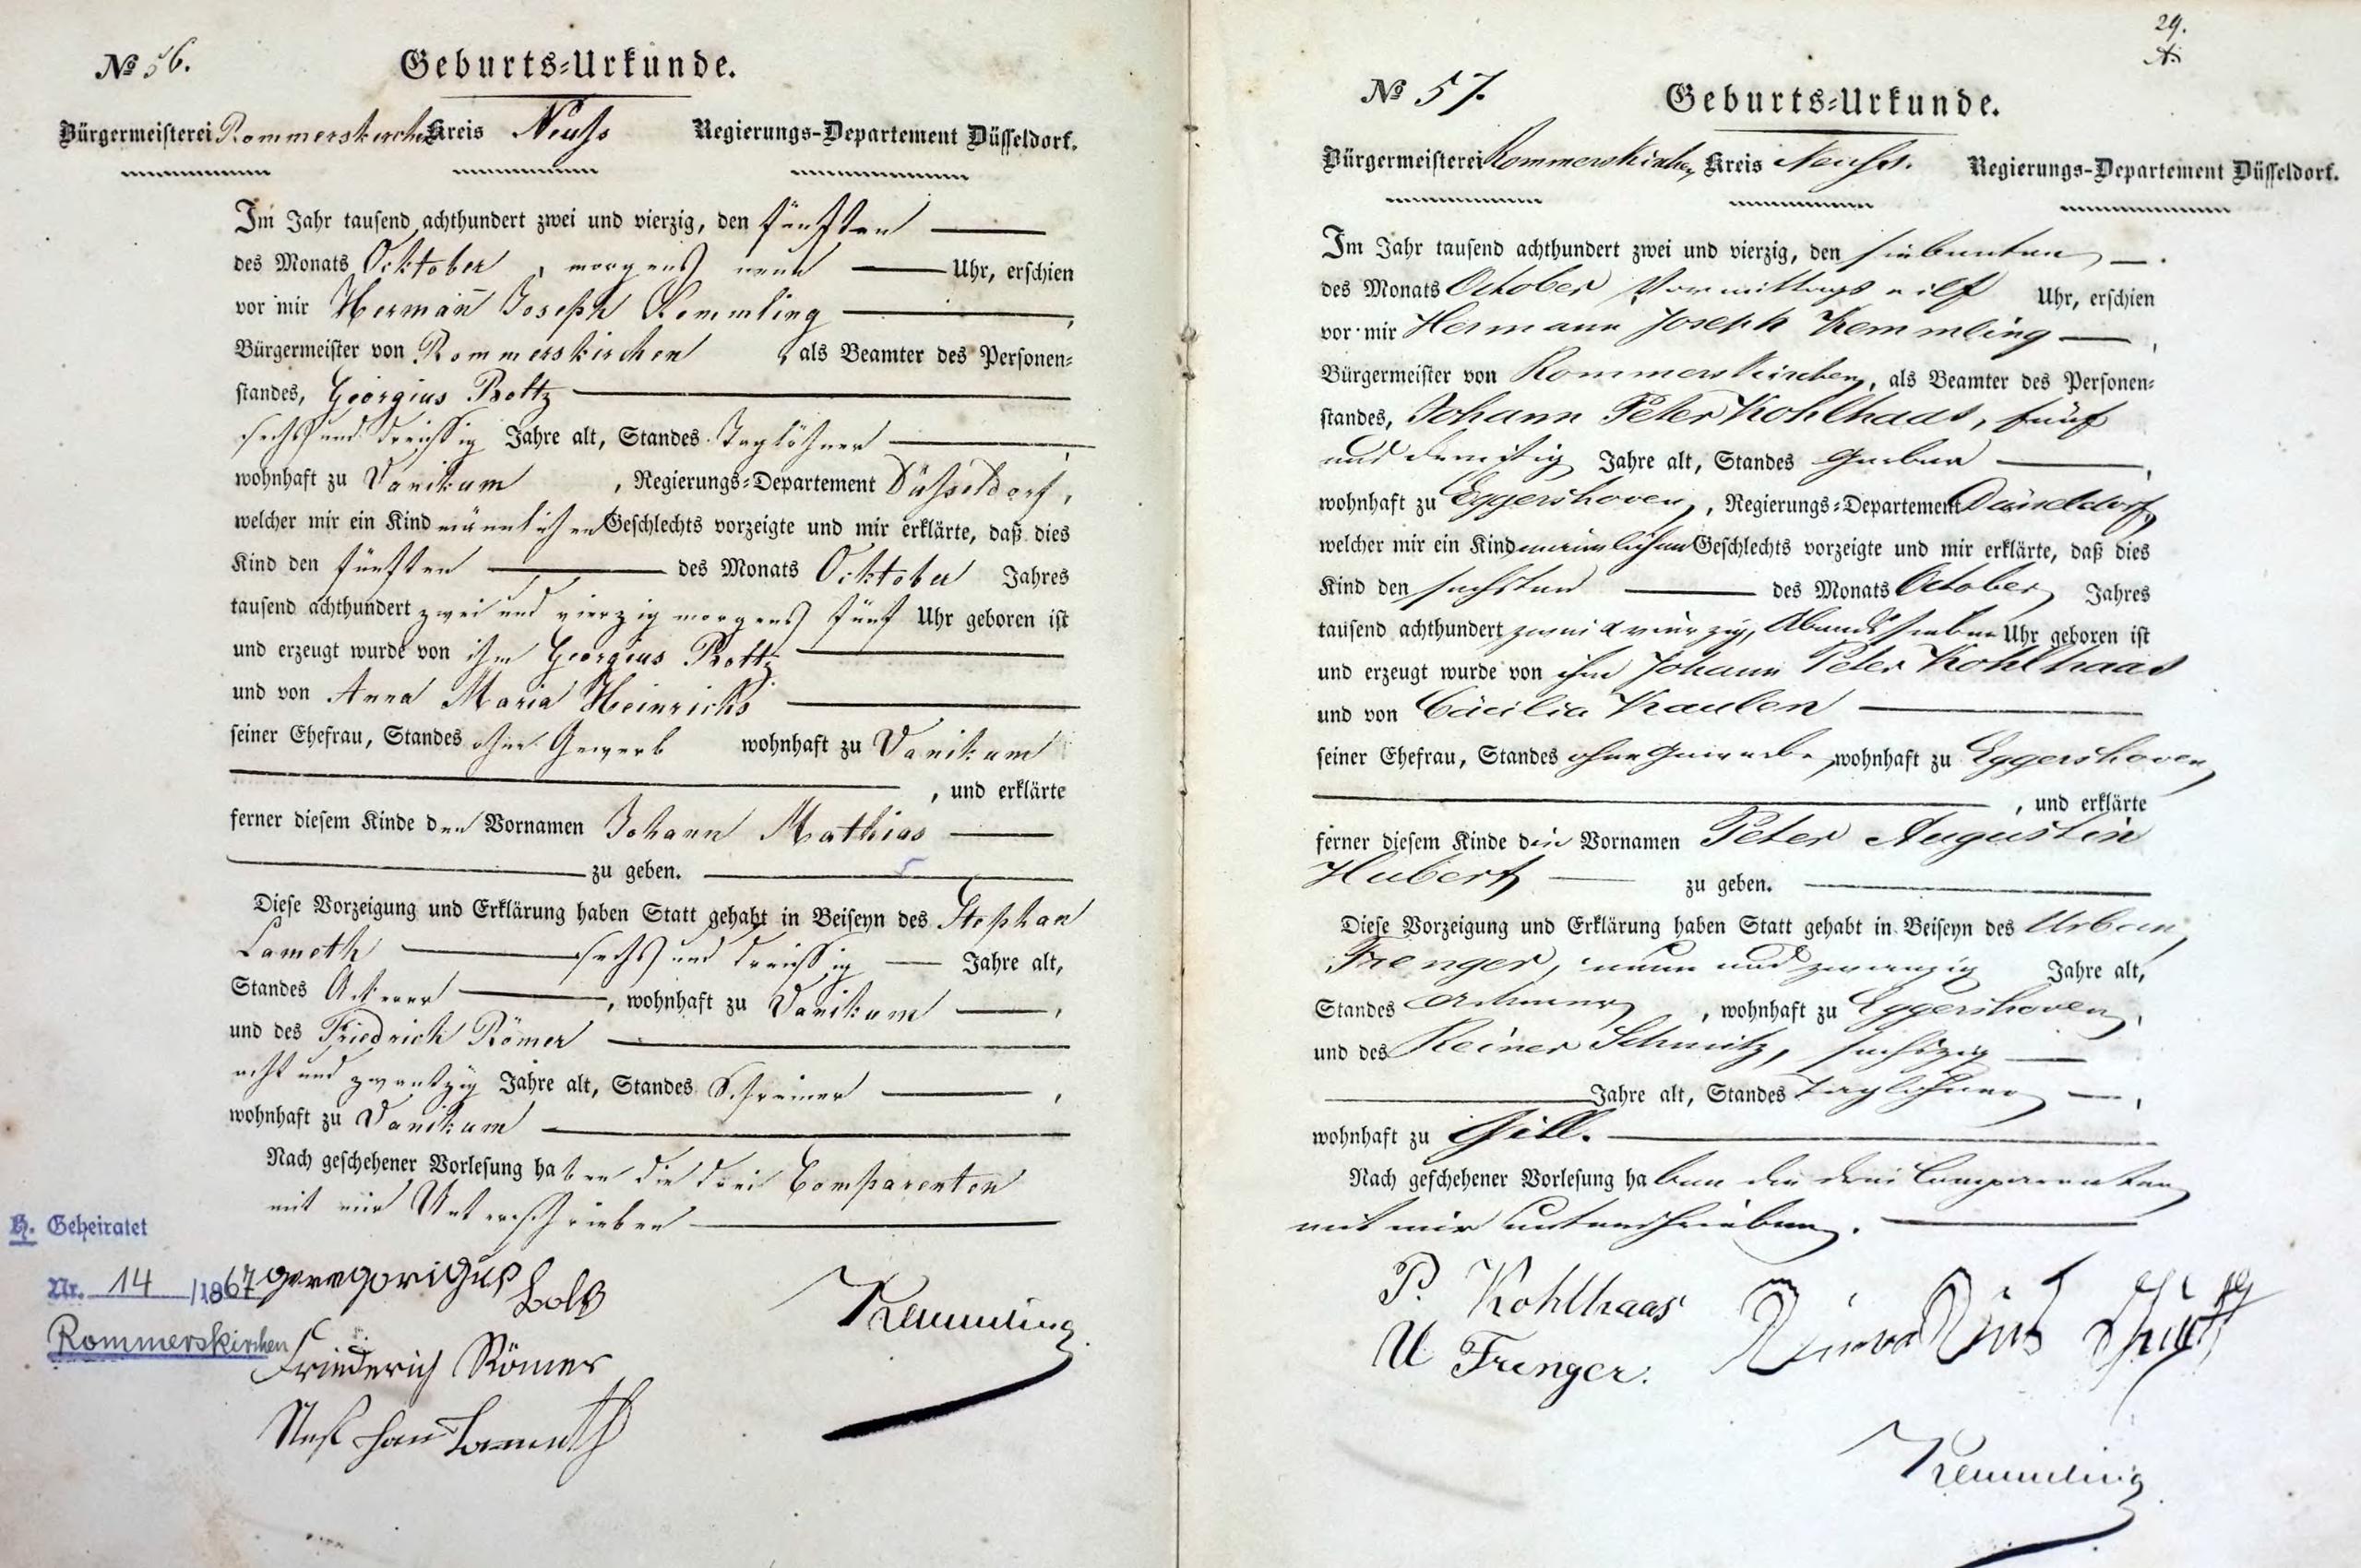 № 56.
Geburts=Urkunde.
Bürgermeisterei Rommerskirchen Kreis Neuss Regierungs-Departement Düsseldorf.
Im Jahr tausend achthundert zwei und vierzig, den fünften
des Monats Ocktober, morgens neun Uhr, erschien
vor mir Hermañ Joseph Kemmling,
Bürgermeister von Rommerskirchen, als Beamter des Personen=
standes, Georgius Boltz
sechs und dreissig Jahre alt, Standes Taglöhner,
wohnhaft zu Vanikum, Regierungs=Departement Düsseldorf,
welcher mir ein Kind männlichen Geschlechts vorzeigte und mir erklärte, daß dies
Kind den fünften des Monats Ocktober Jahres
tausend achthundert zwei und vierzig morgens fünf Uhr geboren ist
und erzeugt wurde von ihm Georgius Boltz
und von Anna Maria Heinrichs
seiner Ehefrau, Standes ohne Gewerb wohnhaft zu Vanikum
, und erklärte
ferner diesem Kinde den Vornamen Johann Mathias
zu geben.
Diese Vorzeigung und Erklärung haben Statt gehabt in Beiseyn des Stephan
Lameth sechs und dreissig Jahre alt,
Standes Ackerer, wohnhaft zu Vanikum,
und des Friedrich Römer
acht und zwantzig Jahre alt, Standes Schreiner,
wohnhaft zu Vanikum
Nach geschehener Vorlesung haben die drei Comparenten
mit mir Unterschrieben
H. Geheiratet
Nr. 14 /1867
Rommerskirchen
Kemmling
Friederich Römer
Stephan Lameth
29.
№ 57.
Geburts=Urkunde.
Bürgermeisterei Rommerskirchen, Kreis Neuss. Regierungs-Departement Düsseldorf.
Im Jahr tausend achthundert zwei und vierzig, den siebenten.
des Monats October Vormittags eilf Uhr, erschien
vor mir Hermann Joseph Kemmling,
Bürgermeister von Rommerskirchen, als Beamter des Personen=
standes, Johann Peter Kohlhaas, fünf
und dreissig Jahre alt, Standes Gerber,
wohnhaft zu Eggershoven, Regierungs=Departement Düsseldorf,
welcher mir ein Kind männlichen Geschlechts vorzeigte und mir erklärte, daß dies
Kind den sechsten des Monats October Jahres
tausend achthundert zwei & vierzig, Abends sieben Uhr geboren ist
und erzeugt wurde von ihm Johann Peter Kohlhaas
und von Cäcilia Kaulen
seiner Ehefrau, Standes ohne Gewerbe, wohnhaft zu Eggershoven
, und erklärte
ferner diesem Kinde die Vornamen Peter Augustin
Hubert zu geben.
Diese Vorzeigung und Erklärung haben Statt gehabt in Beiseyn des Urban
Frenger, neun und zwanzig Jahre alt,
Standes Ackerer, wohnhaft zu Eggershoven,
und des Reiner Schmitz, sechszig
Jahre alt, Standes Taglöhner,
wohnhaft zu Gill.
Nach geschehener Vorlesung haben die drei Comparenten
mit mir unterschrieben.
P. Kohlhaas
U Frenger.
Kemmling